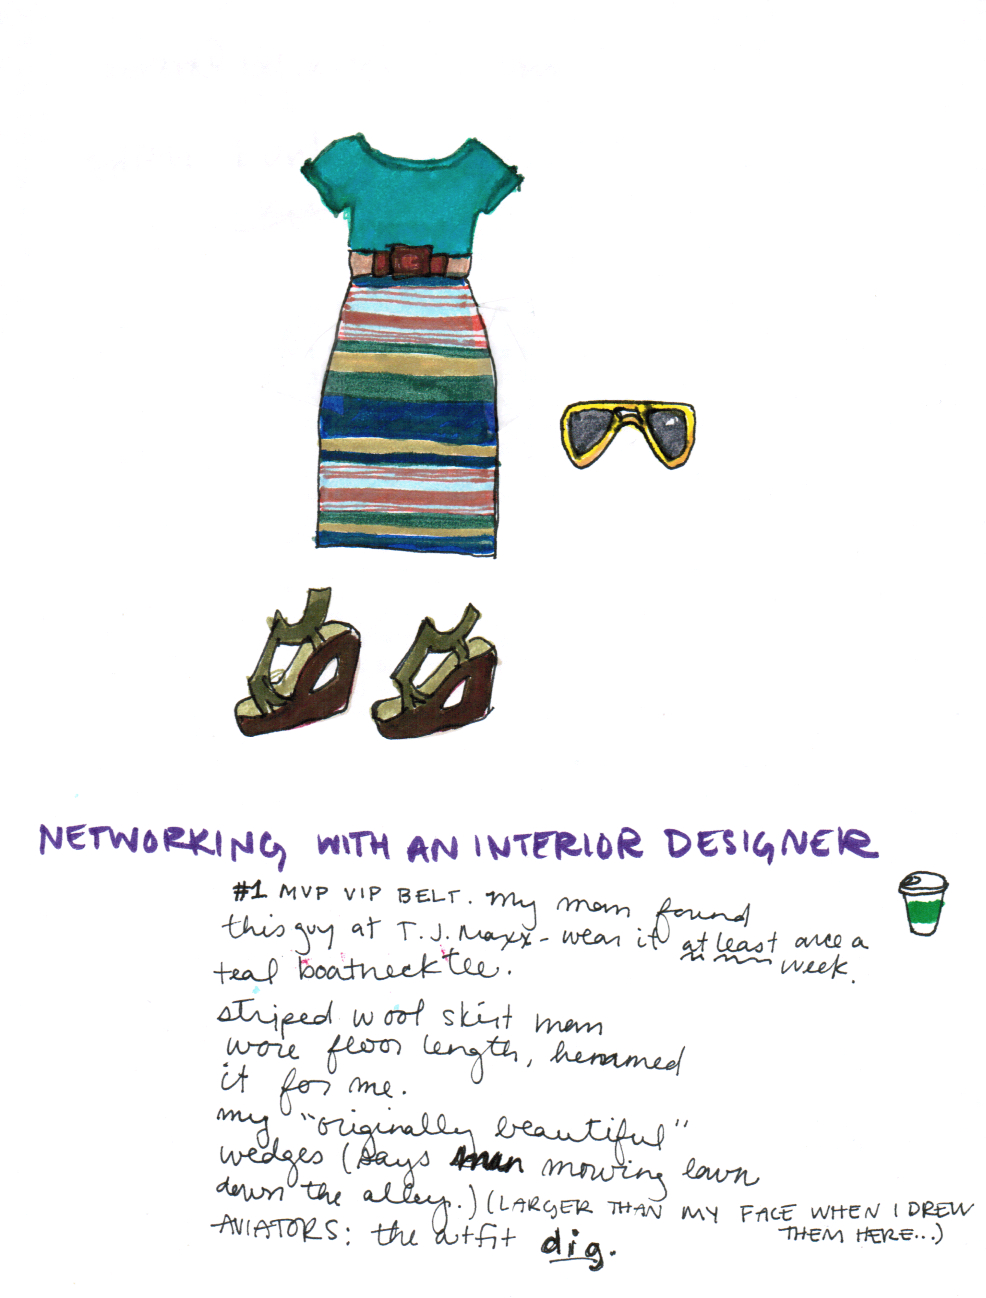 NETWORKING WITH AN INTERIOR DESIGNER
#1 MVP VIP BELT. My mom found
this guy at T.J. Maxx - wear it at least once a
week.
teal boatneck tee.
striped wool skirt mom
wore floor length, hemmed
it for me.
my "originally beautiful"
wedges (says man mowing lawn
down the alley.) (LARGER THAN MY FACE WHEN I DREW
THEM HERE...)
AVIATORS: the outfit dig.